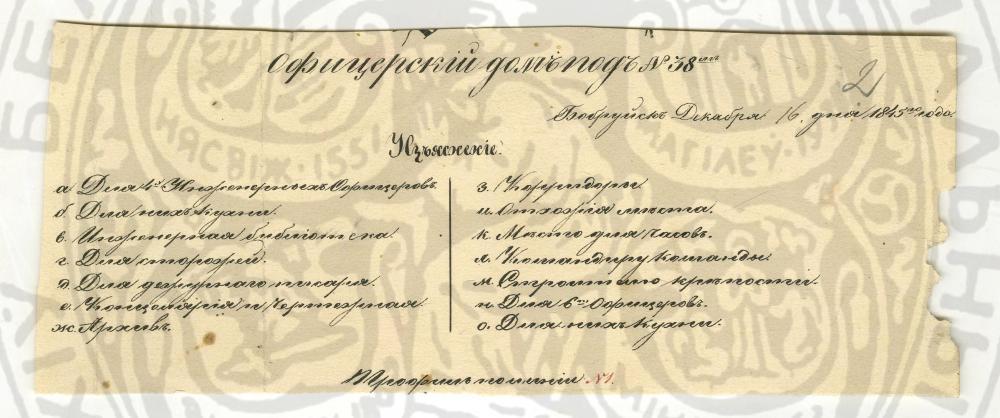 Офицерскій домъ подъ № 38мъ
2
Бобруйскъ Декабря 16. дня 1845го года.
Изъясненіе.
а. Для 4хъ Инженерныхъ Офицеровъ.
б. Для нихъ кухни.
в. Инженерная библіотека.
г. Для сторожей.
д. Для дежурнаго писаря.
е. Канцелярія и Чертежная.
ж. Архивъ.
з. Коридоры.
и. Отхожія мѣста.
к. Мѣсто для часовъ.
л. Командиру команды.
м. Строителю крѣпости.
н. Для 6ти Офицеровъ.
о. Для нихъ кухни.
Профиль по линіи №1.
НЯСВІЖ · 155
МАГІЛЕЎ